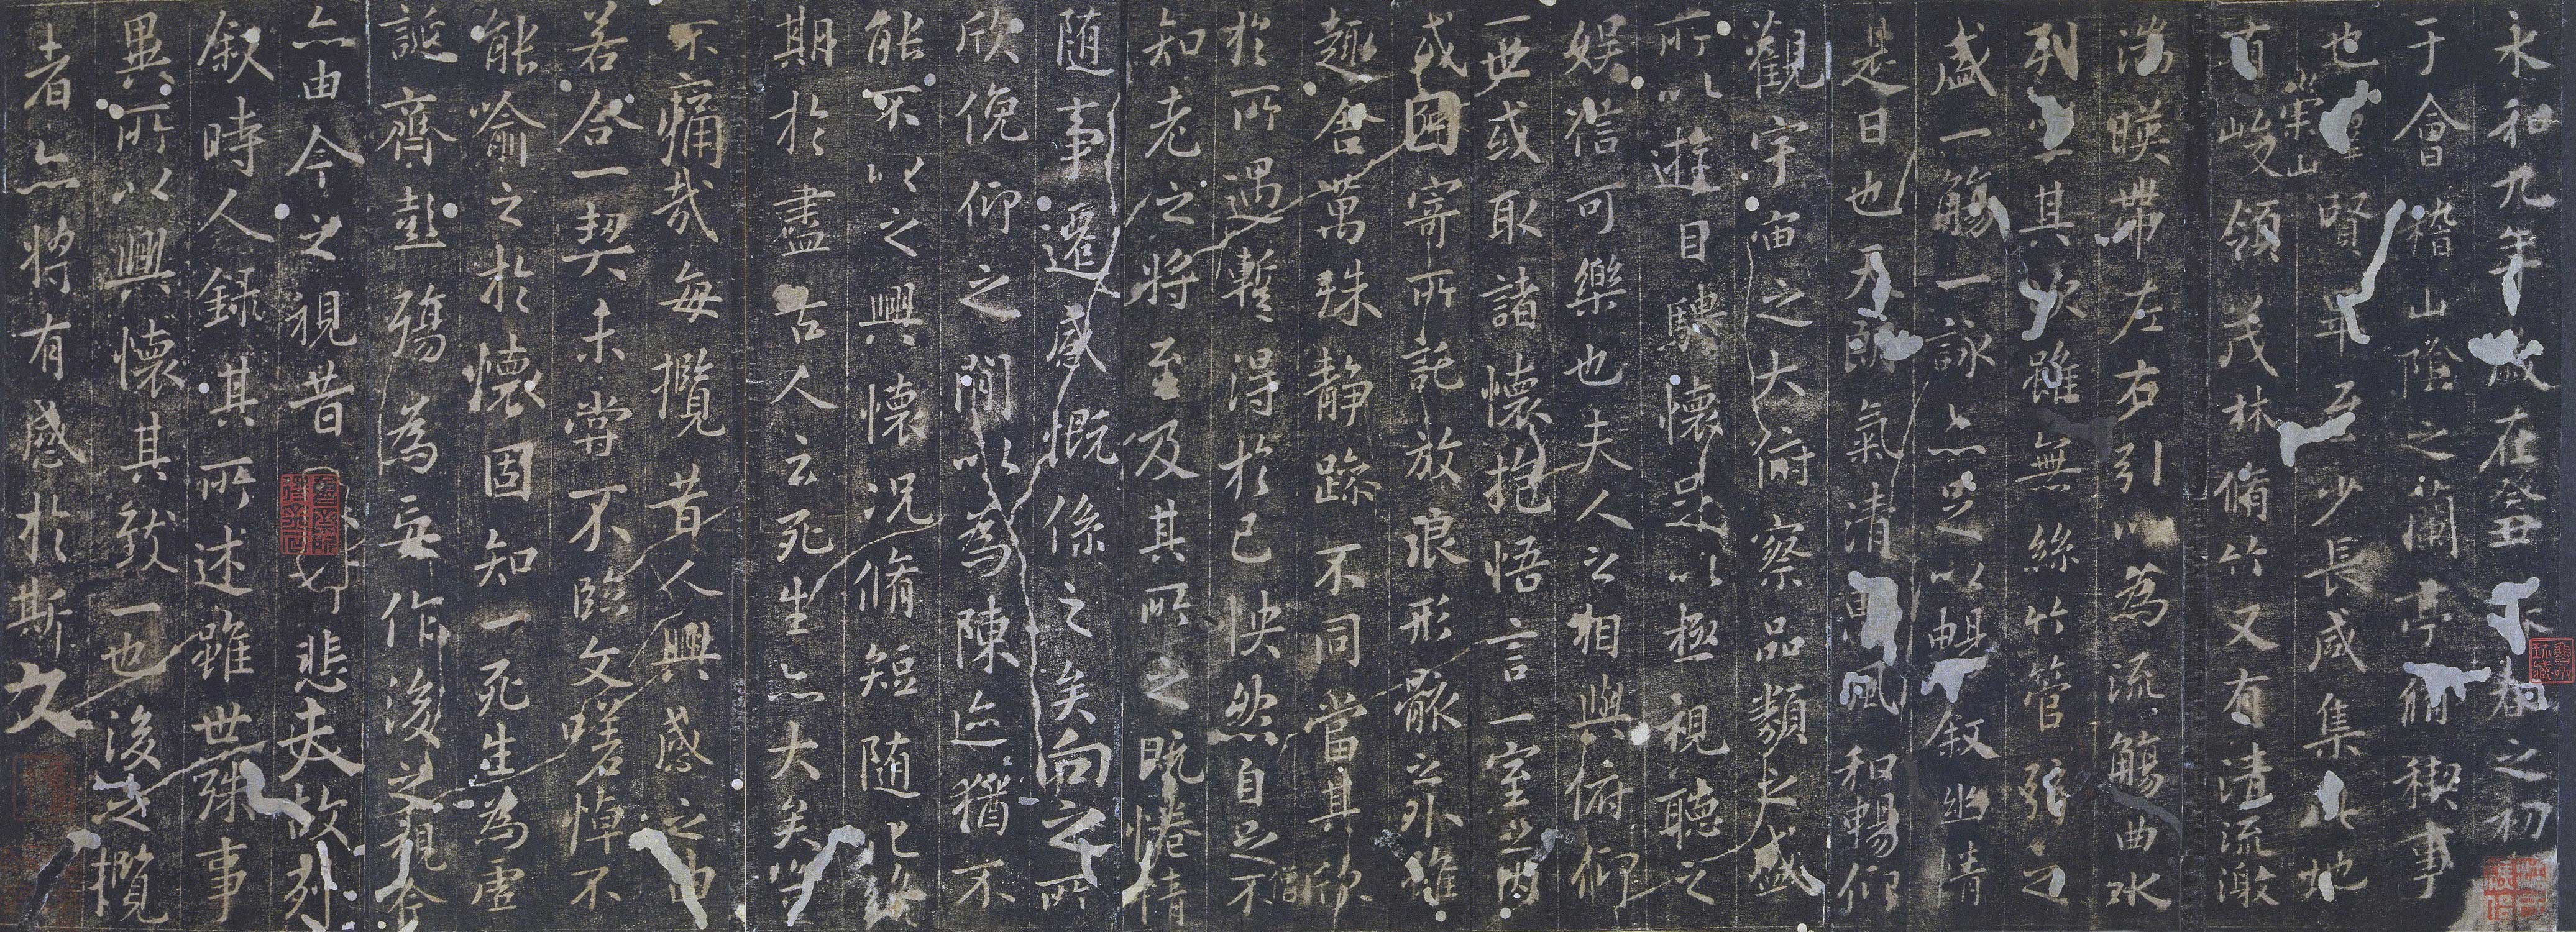 永和九年歲在癸丑暮春之初
于會稽山陰之蘭亭脩稧事
也羣賢畢至少長咸集此地
崇山
有峻領茂林脩竹又有清流激
湍暎帶左右引以為流觴曲水
列坐其次雖無絲竹管弦之
盛一觴一詠亦足以暢叙幽情
是日也天朗氣清惠風和暢仰
觀宇宙之大俯察品類之盛
所以遊目騁懷足以極視聽之
娛信可樂也夫人之相與俯仰
一世或取諸懷抱悟言一室之內
或因寄所託放浪形骸之外雖
趣舍萬殊静躁不同當其欣
於所遇暫得於己怏然自足不
僧
知老之將至及其所之既惓情
随事遷感慨係之矣向之所
欣俛仰之閒以為陳迹猶不
能不以之興懷況脩短随化終
期於盡古人云死生亦大矣豈
不痛哉每攬昔人興感之由
若合一契未嘗不臨文嗟悼不
能喻之於懷固知一死生為虛
誕齊彭殤為妄作後之視今
亦由今之視昔 悲夫故列
叙時人錄其所述雖世殊事
異所以興懷其致一也後之攬
者亦將有感於斯文